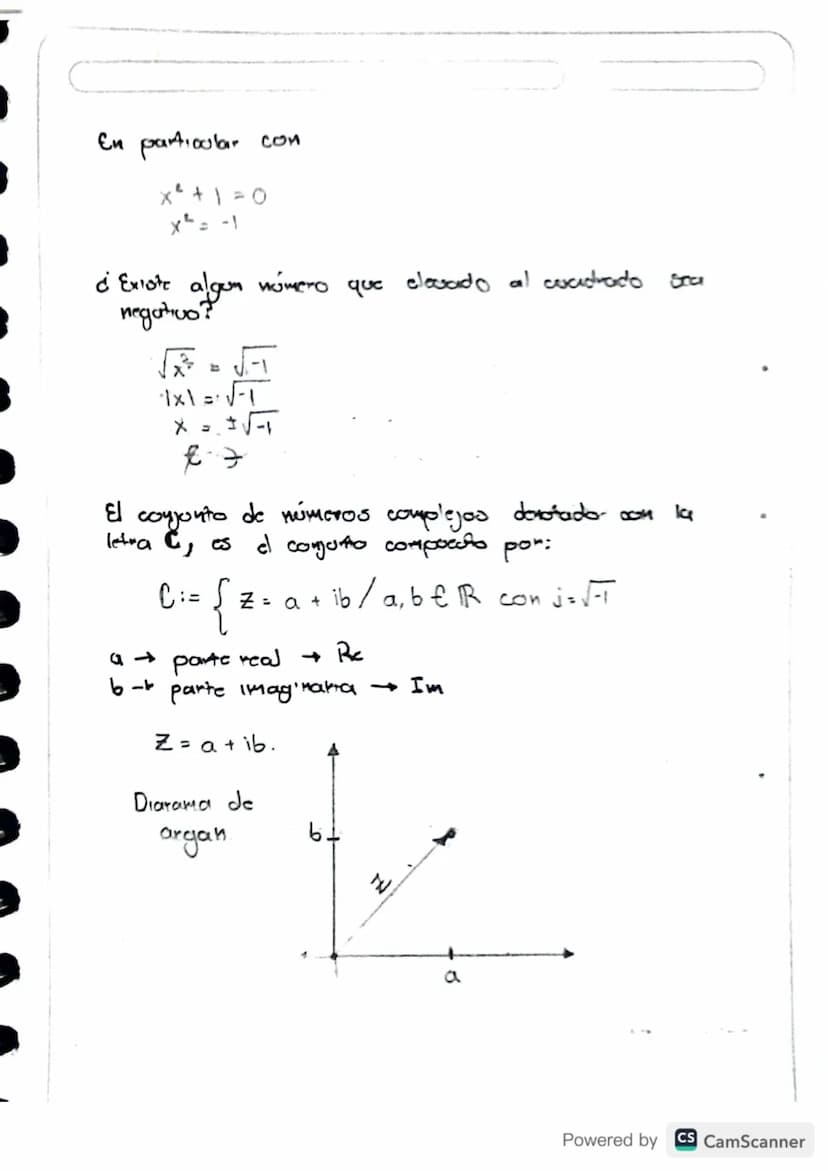 En particular con
x² + 1 = 0
x² = -1
¿Existe algun número que elevado al cuadrado sea
negativo?
√x² = √-1
|x| = √-1
x = ±√-1
El conjunto de números complejos denotado con la
letra C, es el conjunto compuesto por:
C := { z = a + ib / a, b ∈ ℝ con i = √-1
a → parte real → Re
b → parte imaginaria → Im
Z = a + ib.
Diarama de
argan
b
z
a
Powered by CS CamScanner